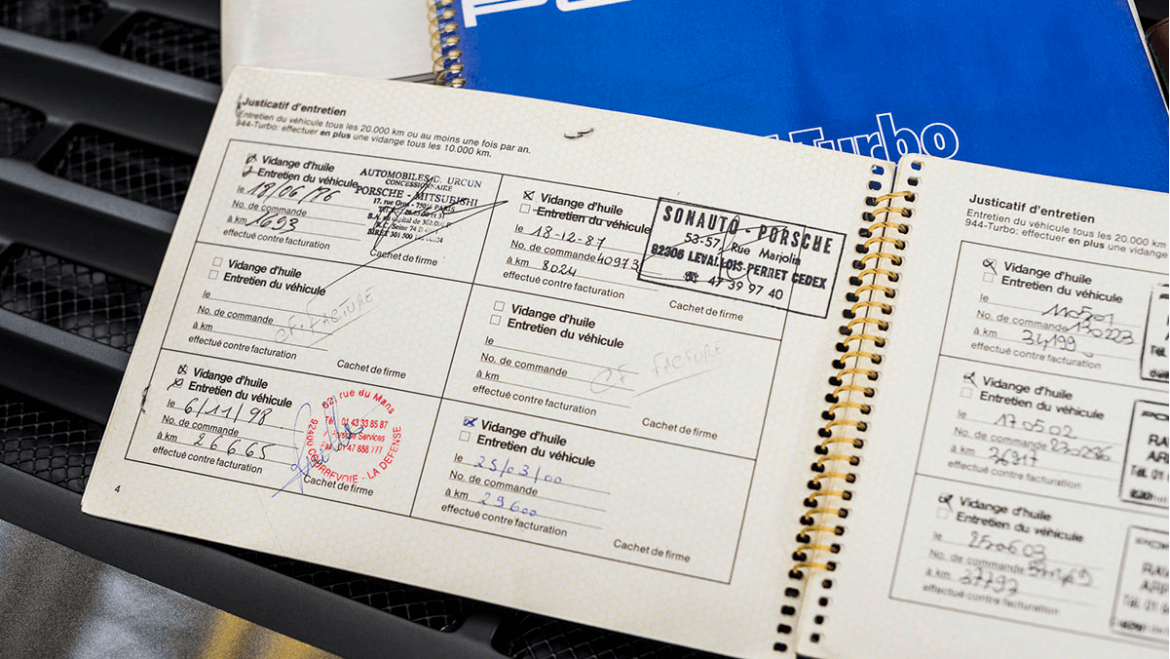 Turbo
Justicatif d'entretien
Entretien du véhicule tous les 20.000 km ou au moins une fois par an.
944-Turbo: effectuer en plus une vidange tous les 10.000 km.
Vidange d'huile
Entretien du véhicule
le 18/06/
No. de commande
à km 2693
effectué contre facturation
AUTOMOBILES C. URCUN
CONCESSIONNAIRE
PORSCHE - MITSUBISHI
Cachet de firme
Vidange d'huile
Entretien du véhicule
le 18-12-87
No. de commande 40973
à km 8024
effectué contre facturation
SONAUTO - PORSCHE
53-57, Rue Marjolin
92306 LEVALLOIS-PERRET CEDEX
☎ 47 39 97 40
Cachet de firme
Vidange d'huile
Entretien du véhicule
le
No. de commande
à km
effectué contre facturation
FACTURE
Cachet de firme
Vidange d'huile
Entretien du véhicule
le
No. de commande
à km
effectué contre facturation
FACTURE
Cachet de firme
Vidange d'huile
Entretien du véhicule
le 6/11/98
No. de commande
à km 26665
effectué contre facturation
62, rue du Mans
Tél. 01 43 33 85 87
Services
92400 COURBEVOIE - LA DEFENSE
Cachet de firme
Vidange d'huile
Entretien du véhicule
le 25/03/00
No. de commande
à km 29600
effectué contre facturation
Cachet de firme
4
Justicatif d'entretien
Entretien du véhicule tous les 20.000 km
944-Turbo: effectuer en plus une vidange
Vidange d'huile
Entretien du véhicule
le 110501
No. de commande 130223
à km 34199
effectué contre facturation
Vidange d'huile
Entretien du véhicule
le 170502
No. de commande
à km 36917
effectué contre facturation
Vidange d'huile
Entretien du véhicule
le 250603
No. de commande
à km 37792
effectué contre facturation